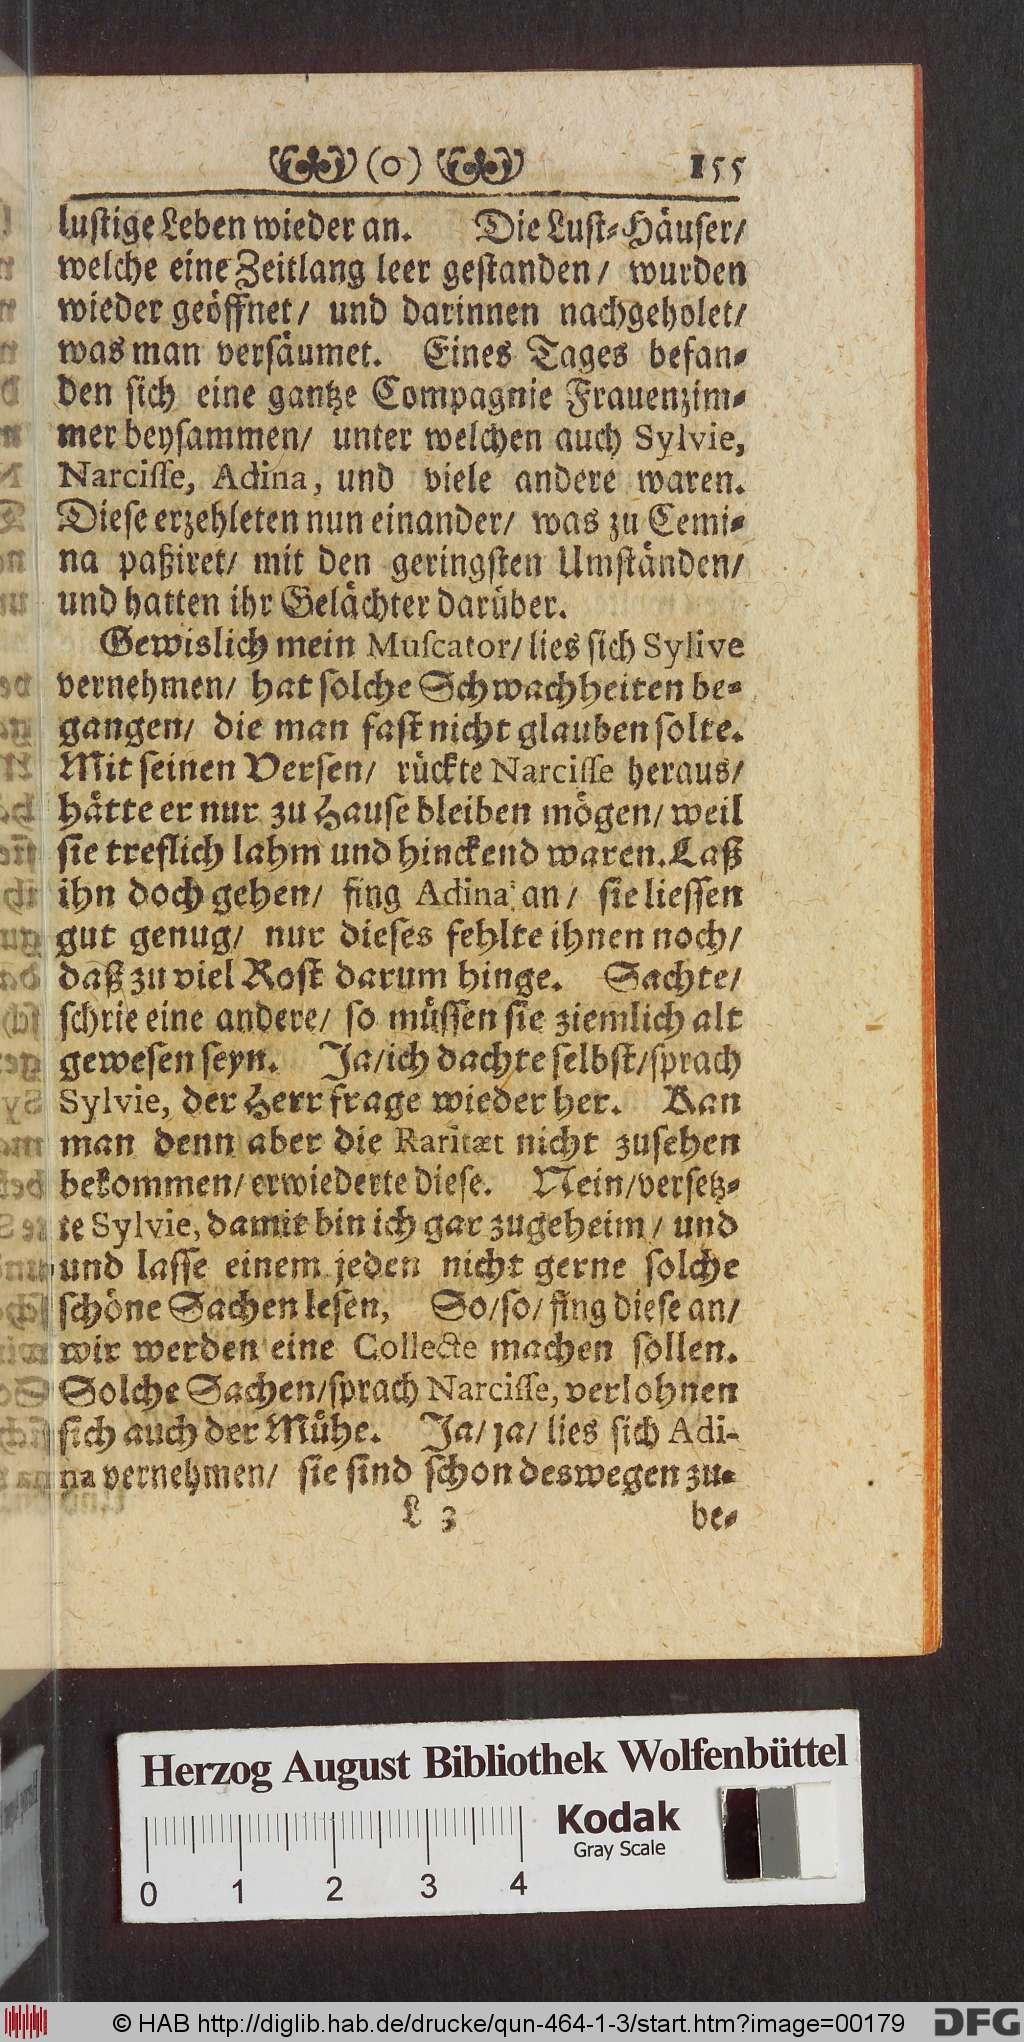 (o) 155
lustige Leben wieder an. Die Lust-Häuser/
welche eine Zeitlang leer gestanden/ wurden
wieder geöffnet/ und darinnen nachgeholet/
was man versäumet. Eines Tages befan-
den sich eine gantze Compagnie Frauenzim-
mer beysammen/ unter welchen auch Sylvie,
Narcisse, Adina, und viele andere waren.
Diese erzehleten nun einander/ was zu Cemi-
na paßiret/ mit den geringsten Umständen/
und hatten ihr Gelächter darüber.
Gewislich mein Muscator/ lies sich Sylive
vernehmen/ hat solche Schwachheiten be-
gangen/ die man fast nicht glauben solte.
Mit seinen Versen/ rückte Narcisse heraus/
hätte er nur zu Hause bleiben mögen/ weil
sie treflich lahm und hinckend waren. Laß
ihn doch gehen/ fing Adina an/ sie liessen
gut genug/ nur dieses fehlte ihnen noch/
daß zu viel Rost darum hinge. Sachte/
schrie eine andere/ so müssen sie ziemlich alt
gewesen seyn. Ja/ ich dachte selbst/ sprach
Sylvie, der Herr frage wieder her. Kan
man denn aber die Raritæt nicht zusehen
bekommen/ erwiederte diese. Nein/ versetz-
te Sylvie, damit bin ich gar zugeheim/ und
und lasse einem jeden nicht gerne solche
schöne Sachen lesen, So/ so/ fing diese an/
wir werden eine Collecte machen sollen.
Solche Sachen/ sprach Narcisse, verlohnen
sich auch der Mühe. Ja/ ja/ lies sich Adi-
na vernehmen/ sie sind schon deswegen zu-
L 3 be-
Herzog August Bibliothek Wolfenbüttel
Kodak
Gray Scale
0 1 2 3 4
© HAB http://diglib.hab.de/drucke/qun-464-1-3/start.htm?image=00179 DFG